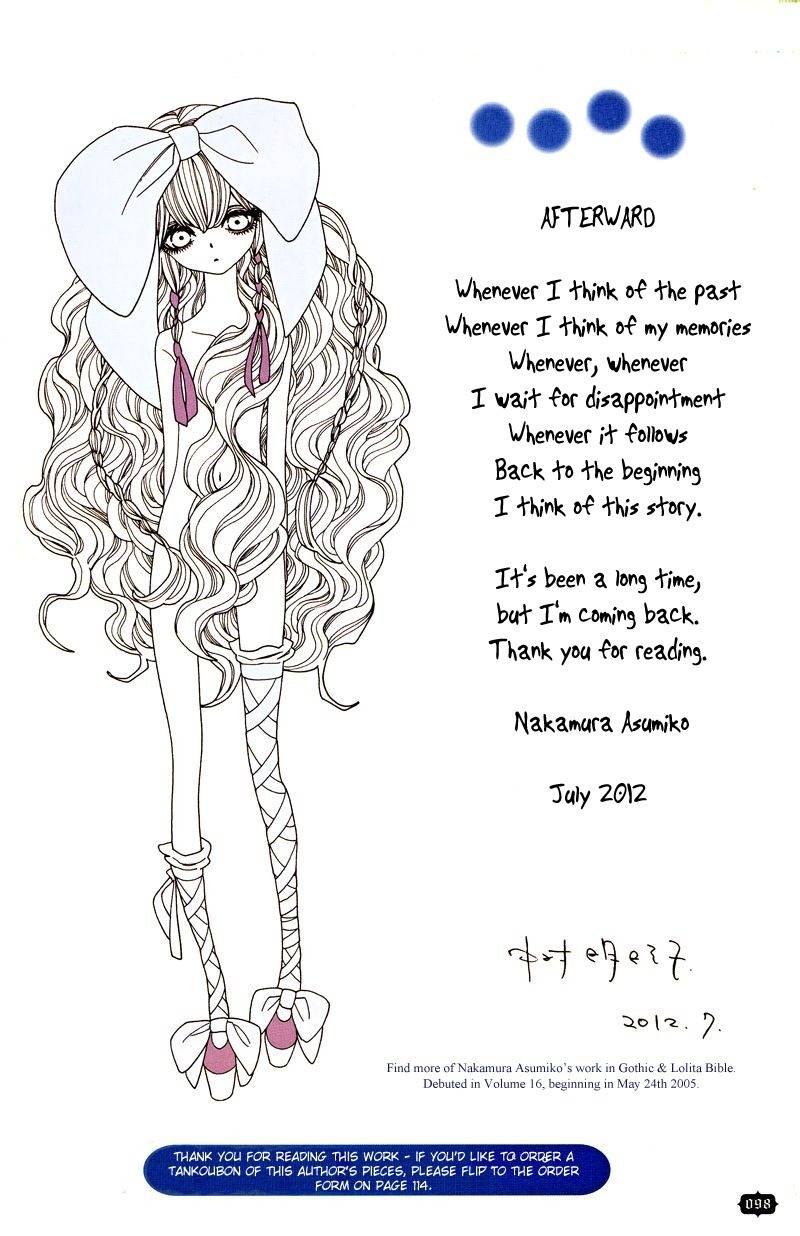 AFTERWARD
Whenever I think of the past
Whenever I think of my memories
Whenever, whenever
I wait for disappointment
Whenever it follows
Back to the beginning
I think of this story.
It's been a long time,
but I'm coming back.
Thank you for reading.
Nakamura Asumiko
July 2012
中村明日美子.
2012.7.
Find more of Nakamura Asumiko's work in Gothic & Lolita Bible.
Debuted in Volume 16, beginning in May 24th 2005.
THANK YOU FOR READING THIS WORK - IF YOU'D LIKE TO ORDER A
TANKOUBON OF THIS AUTHOR'S PIECES, PLEASE FLIP TO THE ORDER
FORM ON PAGE 114.
098